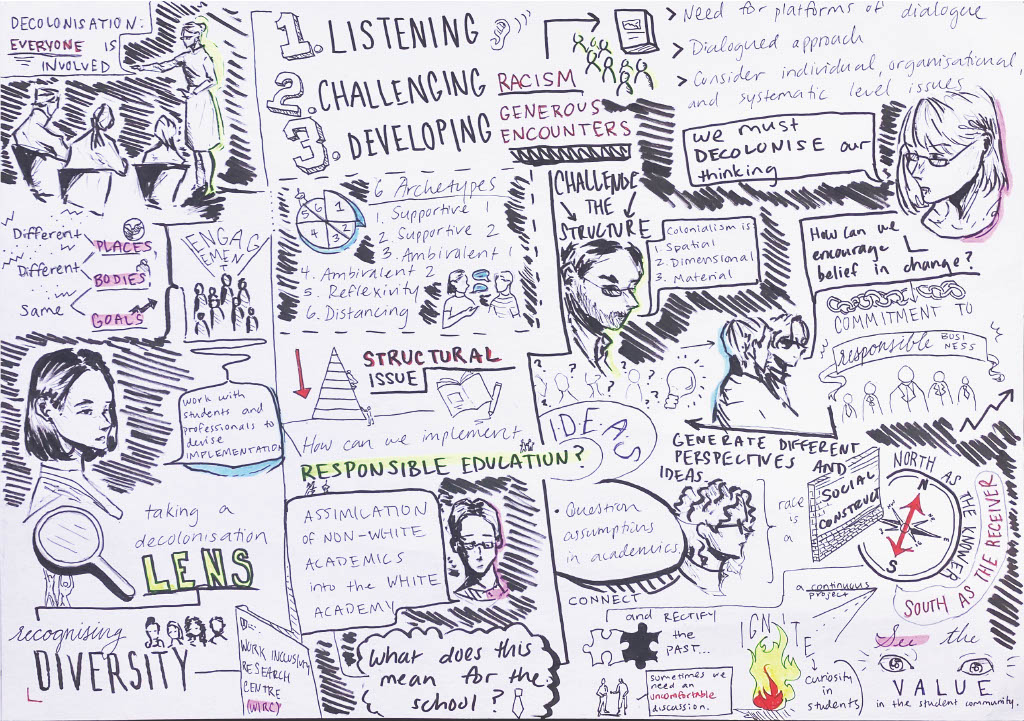 DECOLONISATION:
EVERYONE IS
INVOLVED
1. LISTENING
2. CHALLENGING RACISM
3. DEVELOPING GENEROUS
ENCOUNTERS
> Need for platforms of dialogue
> Dialogued approach
> Consider individual, organisational,
and systematic level issues
we must
DECOLONISE our
thinking
Different
PLACES
Different
BODIES
Same
GOALS
ENGAG
EMEN
T
6 Archetypes
1
2
3
4
5
6
1. Supportive 1
2. Supportive 2
3. Ambivalent 1
4. Ambivalent 2
5. Reflexivity
6. Distancing
CHALLENGE
THE
STRUCTURE
Colonialism is:
1. Spatial
2. Dimensional
3. Material
How can we
encourage
belief in change?
COMMITMENT TO
responsible BUSI
NESS
work with
students and
professionals to
devise
IMPLEMENTATION
STRUCTURAL
ISSUE
How can we implement
RESPONSIBLE EDUCATION?
I.D.E.A.S
GENERATE DIFFERENT
PERSPECTIVES AND
IDEAS.
taking a
decolonisation
LENS
ASSIMILATION
OF NON-WHITE
ACADEMICS
into the WHITE
ACADEMY
• Question
assumptions
in academics.
race
is
a
SOCIAL
CONSTRUCT
NORTH AS THE KNOWER
N
E
S
SOUTH AS THE RECEIVER
a continuous
project
CONNECT
and RECTIFY
the
PAST...
recognising
DIVERSITY
WORK INCLUSIVITY
RESEARCH
CENTRE
(WIRC)
What does this
mean for the
school?
sometimes we
need an
uncomfortable
discussion.
IGNITE
curiosity
in
students
See the
VALUE
in the student community.